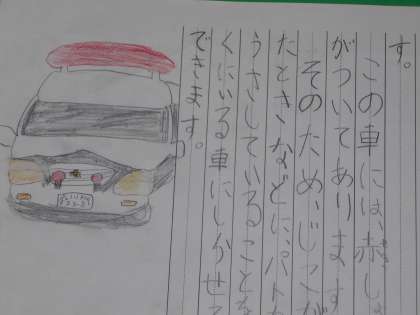 す。
この車には、赤いし
がついてあります
そのため、じこが
たときなどに、パト
うさしていることを
くにいる車にしらせ
できます。